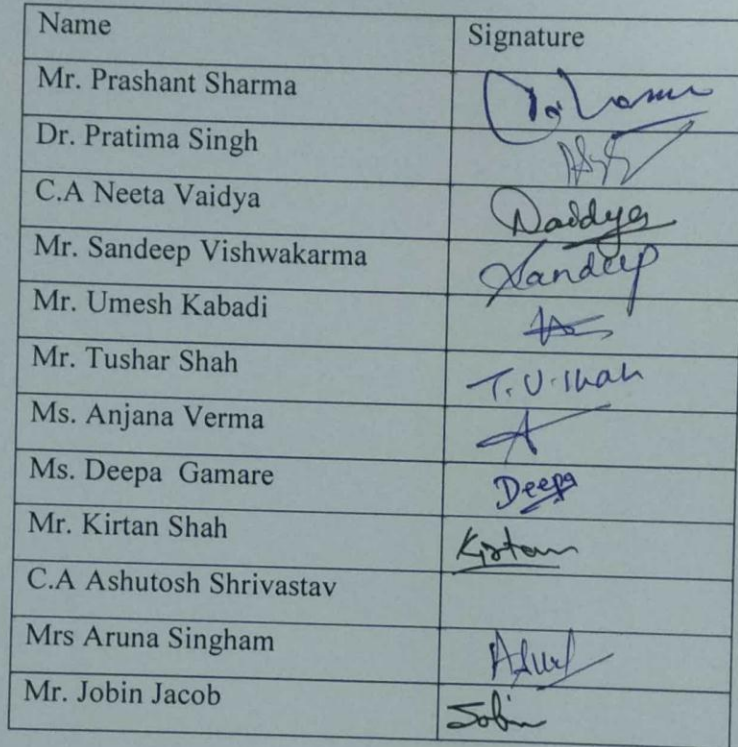 Name Signature
Mr. Prashant Sharma
Dr. Pratima Singh
C.A Neeta Vaidya Naidya
Mr. Sandeep Vishwakarma Sandeep
Mr. Umesh Kabadi
Mr. Tushar Shah T.U.Shah
Ms. Anjana Verma
Ms. Deepa Gamare Deepa
Mr. Kirtan Shah Kirtan
C.A Ashutosh Shrivastav
Mrs Aruna Singham
Mr. Jobin Jacob Jobin